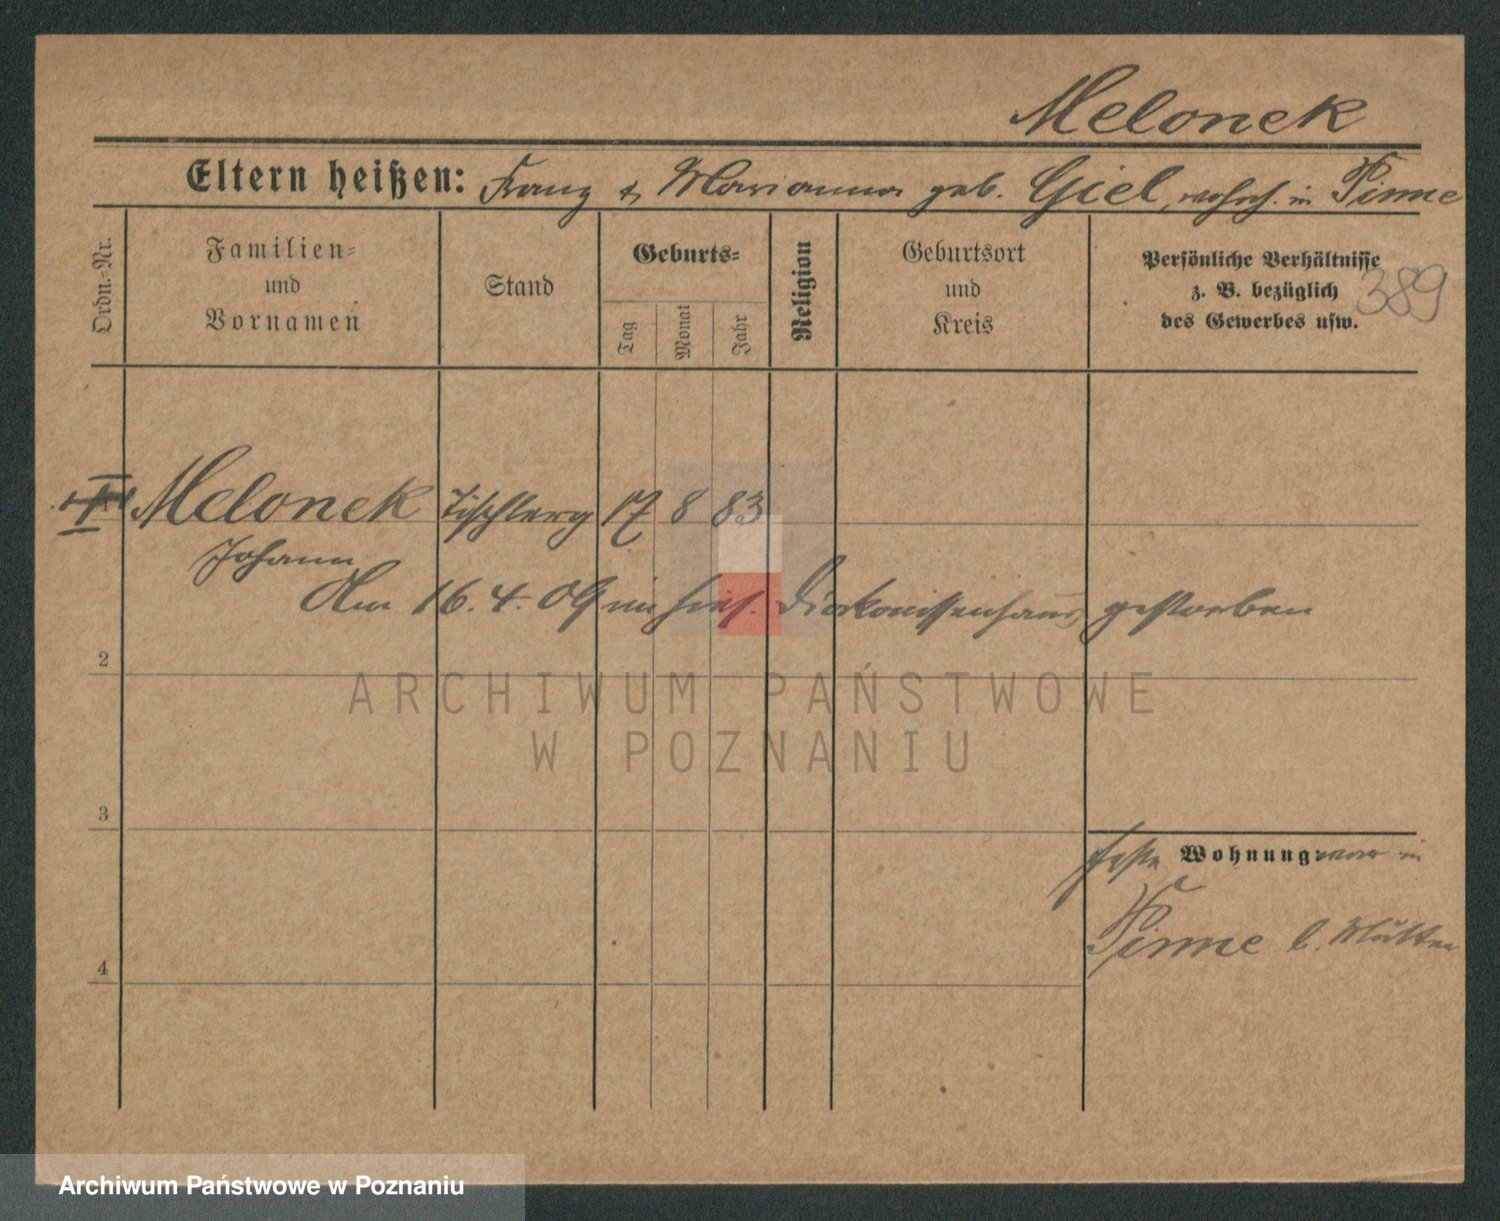 Melonek
Eltern heißen: Franz & Marianna geb. Giel, wohnh. in Pinne
Ordn.-Nr.
Familien-
und
Vornamen
Stand
Geburts-
Tag
Monat
Jahr
Religion
Geburtsort
und
Kreis
Persönliche Verhältnisse
z. B. bezüglich
des Gewerbes usw.
389
Melonek Tischlerg 17 8 83
Johann
Am 16. 4. 09 im hies. Diakonissenhaus gestorben
2
3
4
feste Wohnung: war in
Pinne b. Mutter
ARCHIWUM PAŃSTWOWE
W POZNANIU
Archiwum Państwowe w Poznaniu